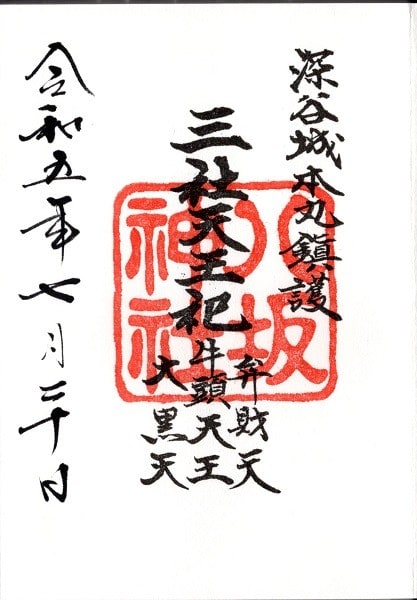 深谷城本丸鎮護
三社天王祀
弁財天
牛頭天王
大黒天
八坂
神社
令和五年七月二十日